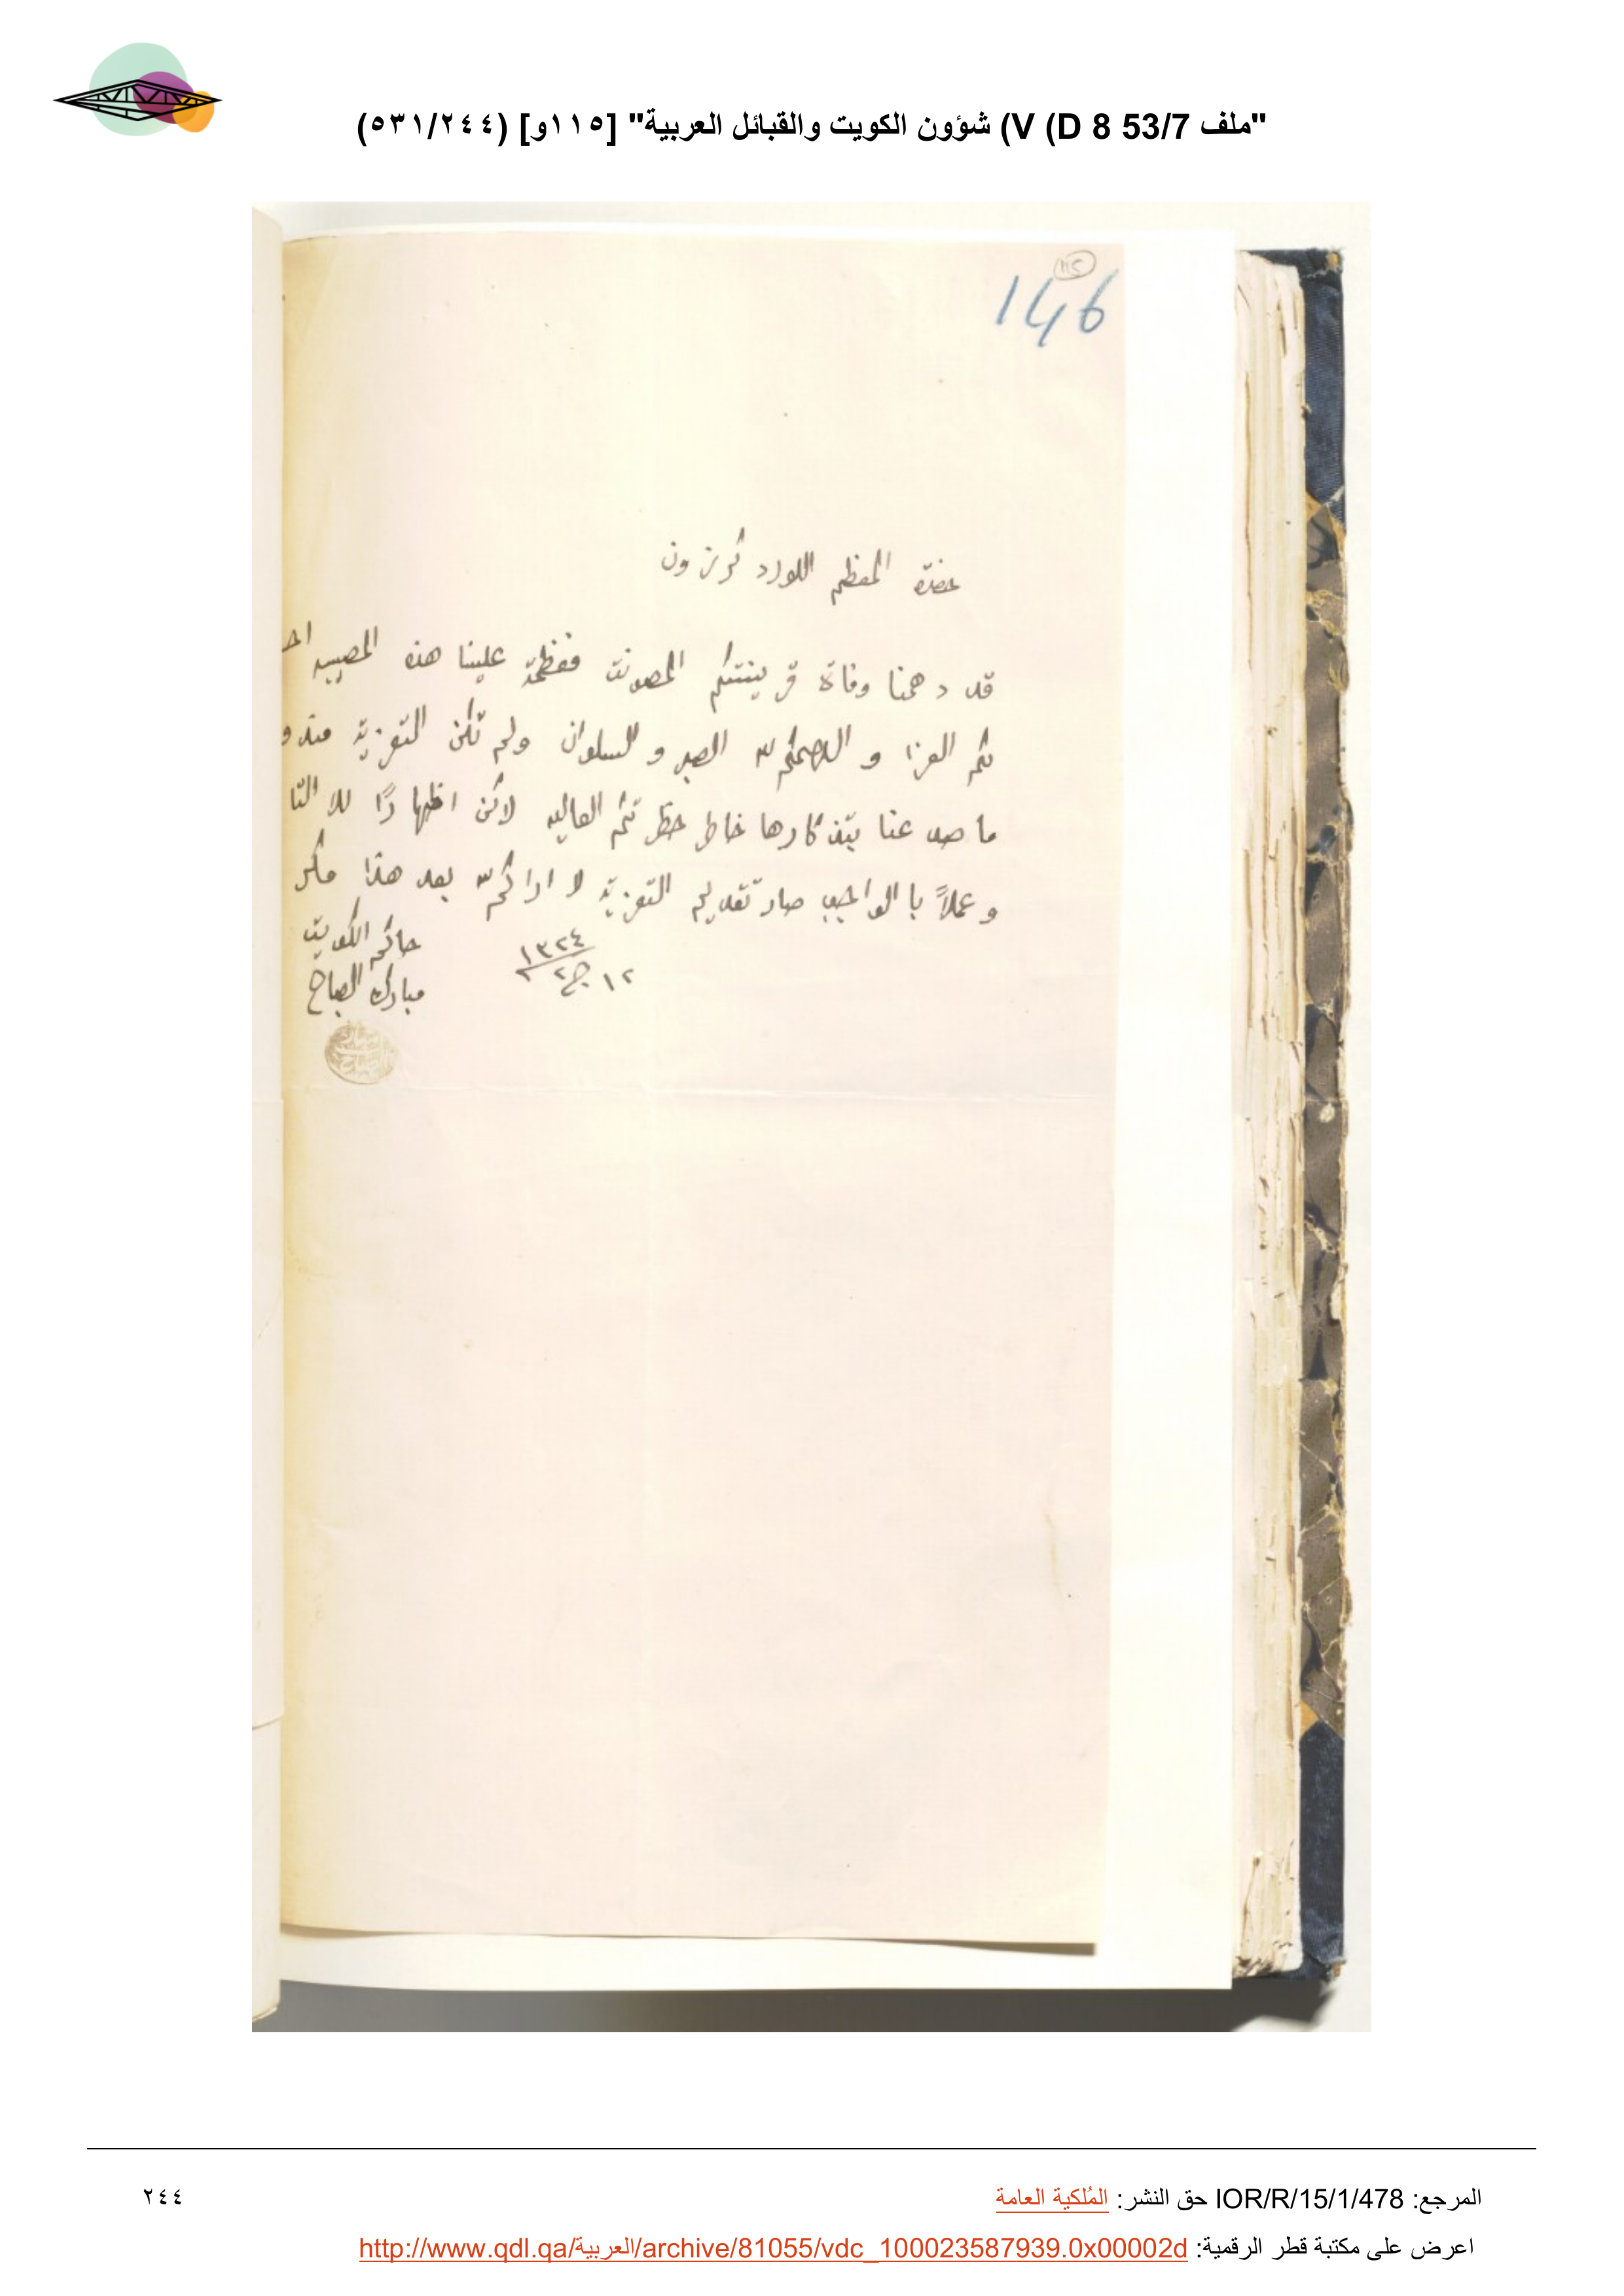 "ملف 53/7 V (D 8) شؤون الكويت والقبائل العربية" [١١٥و] (٥٣١/٢٤٤)
146
حضرة المعظم اللورد كرزون
قد دهمنا وفاة قرينتكم المصونت فعظمة علينا هذه المصيبه احـ
لكم العزا و اللاهمكم الله الصبر و السلوان ولم تكن التعزية
ما صد عنا بتذكارها خاطر حظرتكم العاليه لاكن اظهارًا للا التا
و عملاً با الواجب صار تقديم التعزية لا اراكم الله بعد هذا مكر
حاكم الكويت
مبارك الصباح
١٢ ج٢ ١٣٢٤
المرجع: IOR/R/15/1/478 حق النشر: المُلكية العامة
٢٤٤
اعرض على مكتبة قطر الرقمية: http://www.qdl.qa/العربية/archive/81055/vdc_100023587939.0x00002d